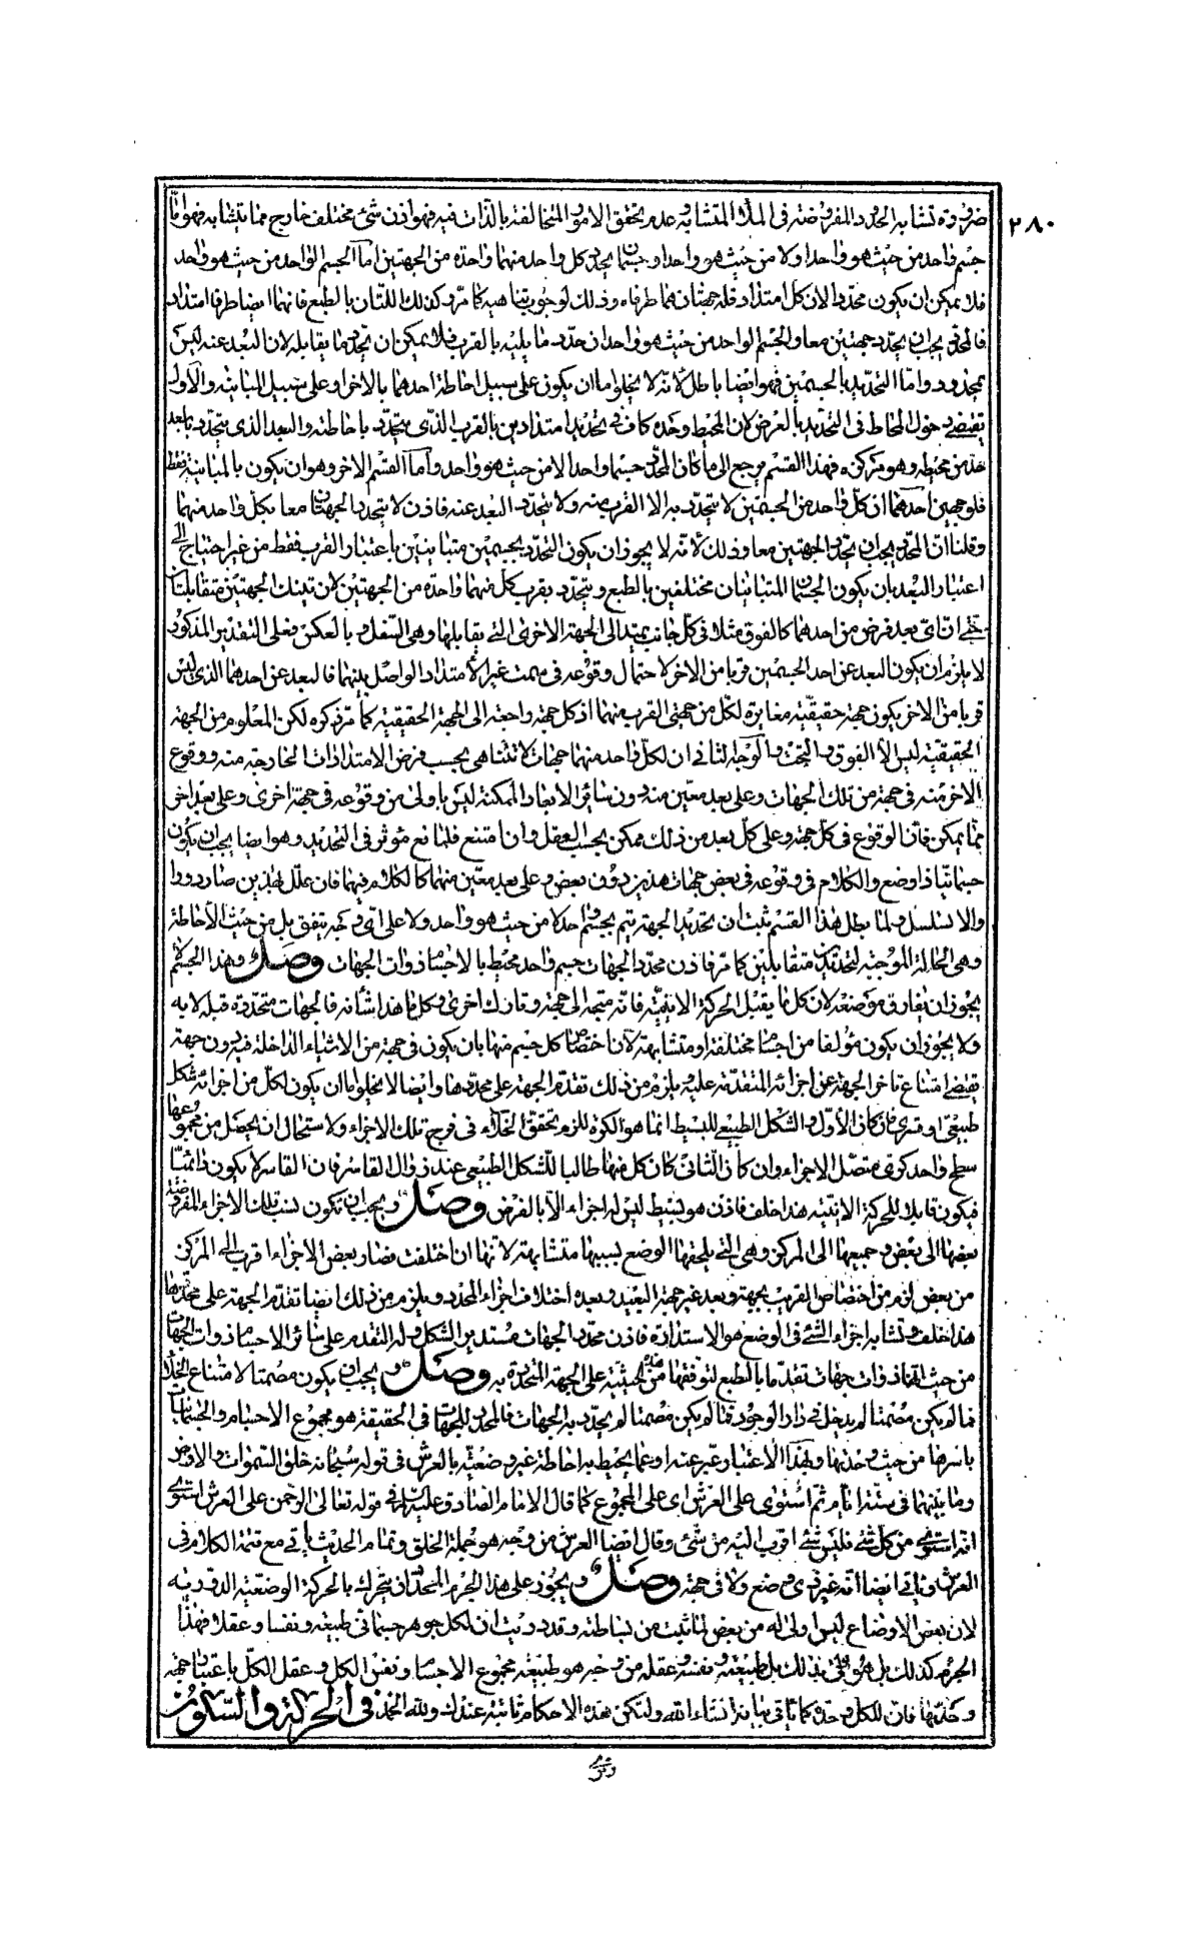 ٢٨٠
ضرورة تشابه الحدود المفروضة فى الملاء المتشابه عدم تحقق الامور المتخالفة بالذات فيه فهو اذن شئ مختلف خارج مما يتشابه فهو امّا
جسم واحد من حيث هو واحد او لا من حيث هو واحد او جسمان يحدد كل واحد منهما واحدة من الجهتين امّا الجسم الواحد من حيث هو واحد
فلا يمكن ان يكون محدّدا لان كل امتداد فله جهتان هما طرفاه وذلك لوجوب تناهيه كما مرّ وكذلك اللتان بالطبع فانهما ايضا طرفا امتداد
فالمحدد يجب ان يحدّد جهتين معا والجسم الواحد من حيث هو واحد ان حدّد ما يليه بالقرب فلا يمكن ان يحدّد ما يقابله لان البعد عنه ليس
بمحدود وامّا التحديد بالجسمين فهو ايضا باطل لانّه لا يخلو اما ان يكون على سبيل احاطة احدهما بالاخر او على سبيل المباينة والاول
يقتضى دخول المحاط فى التحديد بالعرض لان المحيط وحده كاف فى تحديد امتدادين بالقرب الذى يتحدّد باحاطته والبعد الذى يتحدد بابعد
حد من محيطه وهو مركزه فهذا القسم يرجع الى ما كان المحدد جسما واحدا لا من حيث هو واحد وامّا القسم الاخر وهو ان يكون بالمباينة فقط
فلوجهين احدهما ان كلّ واحد من الجسمين لا يتحدّد به الا القرب منه ولا يتحدد البعد عنه فاذن لا يتحدد الجهتان معا بكل واحد منهما
وقلنا انّ المحدّد يجب ان يحدد الجهتين معا وذلك لانّه لا يجوز ان يكون التحدّد بجسمين متباينين باعتبار القرب فقط من غير احتياج الى
اعتبار البعد بان يكون الجسمان المتباينان مختلفين بالطبع ويتحدّد بقرب كل منهما واحدة من الجهتين لان تينك الجهتين متقابلتان
ان اىّ بعد فرض من احدهما كالفوق مثلا فى كل جانب يمتد الى الجهة الاخرى التى يقابلها وهى السّفل وبالعكس وعلى التقدير المذكور
لا يلزم ان يكون البعد عن احد الجسمين قربا من الاخر لاحتمال وقوعه فى سمت غير الامتداد الواصل بينهما فالبعد عن احدهما الذى ليس
قربا من الاخر يكون جهة حقيقيّة مغايرة لكلّ من جهتى القرب منهما اذ كل جهة واجعة الى الجهة الحقيقية كما مرّ ذكره لكن المعلوم من الجهة
الحقيقية ليس الا الفوق والتحت والوجه الثانى ان لكلّ واحد منهما جهات لا تتناهى بحسب فرض الامتدادات الخارجة منه ووقوع
الاخر منه فى جهة من تلك الجهات وعلى بعد معيّن منه دون سائر الابعاد الممكنة ليس باولى من وقوعه فى جهة اخرى وعلى بعد اخر
ممّا يمكن فانّ الوقوع فى كلّ جهة وعلى كلّ بعد من ذلك ممكن بحسب العقل وان امتنع فلمانع مؤثر فى التحديد وهو ايضا يجب ان يكون
جسمانيّا ذا وضع والكلام فى وقوعه فى بعض جهات هذين دون بعض وعلى بعد معيّن منهما كالكلام فيهما فان علّل بهذين صار دورا
والا تسلسل ولما بطل هذا القسم ثبت ان تحديد الجهة يتم بجسم واحد لا من حيث هو واحد ولا على اى وجه يتفق بل من حيث الاحاطة
وهى الحالة الموجبة لتحديدين متقابلين كما مر فاذن محدّد الجهات جسم واحد محيط بالاجسام ذوات الجهات وصـل وهذا الجسم لا
يجوز ان يفارق موضعه لانّ كل ما يقبل الحركة الاينيّة فانه متجه الى جهة وتارك اخرى وكل ما هذا شأنه فالجهات متحددة قبله لا به
ولا يجوز ان يكون مؤلفا من اجسام مختلفة او متشابهة لانّ اختصاص كل جسم منها بان يكون فى جهة من الاشياء الداخلة فيه دون جهة
يقتضى امتناع تاخر الجهة عن اجزائه المتقدّمة عليه يلزم من ذلك تقدّم الجهة على محدّدها وايضا لا يخلو اما ان يكون لكلّ من اجزائه شكل
طبيعىّ او قسرى فان كان الاول والشكل الطبيعى للبسيط انما هو الكرة للزم تحقق الخلاء فى فرج تلك الاجزاء ولاستحال ان يحصل من مجموعها
سطح واحد كروى متصّل الاجزاء وان كان الثانى كان كل منها طالبا للشكل الطبيعى عند زوال القاسر فان القاسر لا يكون دائميّا
فيكون قابلا للحركة الاينيّة هذا خلف فاذن هو بسيط ليس له اجزاء الا بالفرض وصـل ويجب ان تكون نسب تلك الاجزاء المفروضة
بعضها الى بعض وجميعها الى المركز وهى التى يلحقها الوضع بسببها متشابهة لانها ان اختلفت فصار بعض الاجزاء اقرب الى المركز
من بعض لزم من اختصاص القريب بجهة وبعد غير جهة البعيد وبعده اختلاف اجزاء المحدد ويلزم من ذلك ايضا تقدّم الجهة على محدّدها
هذا خلف وتشابه اجزاء الشئ فى الوضع هو الاستدارة فاذن محدّد الجهات مستدير الشكل وله التقدم على سائر الاجسام ذوات الجهات
من حيث انها ذوات جهات تقدّما بالطبع لتوقفها من هذه الحيثية على الجهة المتحددة به وصـل ويجب ان يكون مصمتا لامتناع الخلاء
فما لم يكن مصمتا لم يدخل فى دار الوجود فما لم يكن مصمتا لم يحدّد به الجهات فالمحدد للجهات فى الحقيقة هو مجموع الاجسام والجسمانيات
باسرها من حيث وحدتها ولهذا الاعتبار وعبّر عنه او عما يحيط به احاطة غير وضعيّة بالعرش فى قوله سبحانه خلق السموات والارض
وما بينهما فى ستة ايام ثمّ استوى على العرش اى على المجموع كما قال الامام الصادق عليه السلام فى قوله تعالى الرحمن على العرش استوى
انه استوى من كل شئ فليس شئ اقرب اليه من شئ وقال ايضا العرش من وجه هو جملة الخلق وتمام الحديث ياتى مع تتمة الكلام فى
العرش وياتى ايضا انه غير ذى وضع ولا فى جهة وصـل ويجوز على هذا الجرم المحدد ان يتحرك بالحركة الوضعية الدورية
لان بعض الاوضاع ليس اولى له من بعض لما ثبت من بساطته وقد دريت ان لكل جوهر جسمانى طبيعة ونفسا وعقلا فهذا
الجرم كذلك بل هو اولى بذلك بل طبيعته ونفسه وعقله من وجه هو طبيعة مجموع الاجسام ونفس الكل وعقل الكلّ باعتبار جهة
وحدتها فان للكل وحدة كما ياتى بيانه انشاء الله ولتكن هذه الاحكام ثابتة عندك ولله الحمد فى الحركة والسّكون